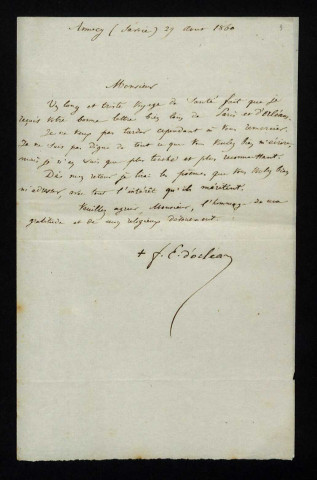 Annecy (Savoie) 29 août 1860
Monsieur
Un long et triste voyage de santé fait que je
reçois votre bonne lettre bien loin de Paris et d'Orléans.
Je ne veux pas tarder cependant à vous remercier.
Je ne suis pas digne de tout ce que vous voulez bien m'écrire,
mais je n'en suis que plus touché et plus reconnaissant.
Dès mon retour je lirai les poèmes que vous voulez bien
m'adresser avec tout l'intérêt qu'ils méritent.
Veuillez agréer Monsieur, l'hommage de ma
gratitude et de mon religieux dévouement
+ f. E. d'orléans